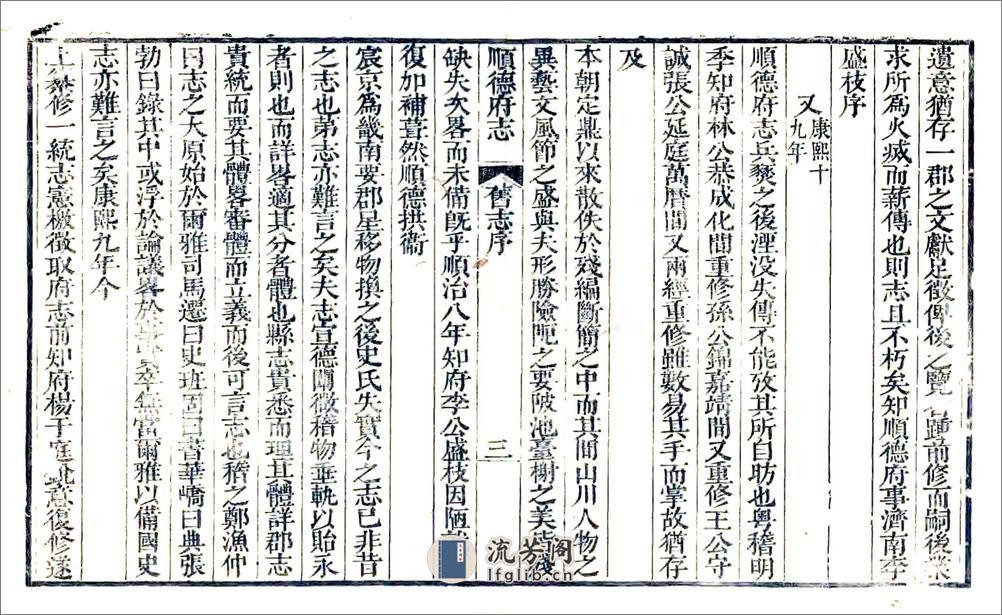 遺意猶存一郡之文獻足徵俾後之覽者踵前修而嗣後業
求所爲火滅而薪傳也則志且不朽矣知順德府事濟南李
盛枝序
又康熙十九年
順德府志兵燹之後湮没失傳不能攷其所自昉也粤稽明
季知府林公恭成化間重修孫公錦嘉靖間又重修王公守
誠張公延庭萬曆間又兩經重修雖數易其手而掌故猶存
及
本朝定鼎以來散佚於殘編斷簡之中而其間山川人物之
異藝文風節之盛與夫形勝險阨之要陂池臺榭之美皆殘
順德府志
舊志序
三
缺失次畧而未備旣乎順治八年知府李公盛枝因陋
復加補葺然順德拱衞
宸京爲畿南要郡星移物換之後史氏失實今之志已非昔
之志也第志亦難言之矣夫志宣德闡微稽物垂軌以貽永
者則也而詳畧適其分者體也縣志貴悉而理其體詳郡志
貴統而要其體畧審體而立義而後可言志也稽之鄭漁仲
曰志之大原始於爾雅司馬遷曰史班固曰書華嶠曰典張
勃曰錄其中或浮於論議畧於事實卒無當爾雅以備國史
志亦難言之矣康熙九年今
上纂修一統志憲檄徵取府志前知府楊于庭銳意復修遂
流芳阁
lfglib.cn